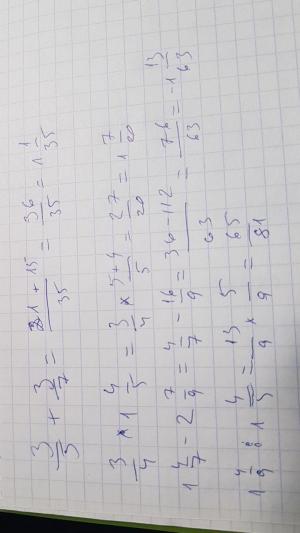 3/5 + 3/7 = 21 + 15/35 = 36/35 = 1 1/35
3/4 × 1 4/5 = 3/4 × 5+4/5 = 27/20 = 1 7/20
1 4/7 - 2 7/9 = 4/7 - 16/9 = 36-112/63 = -76/63 = -1 13/63
1 4/9 : 1 4/5 = 13/9 × 5/9 = 65/81